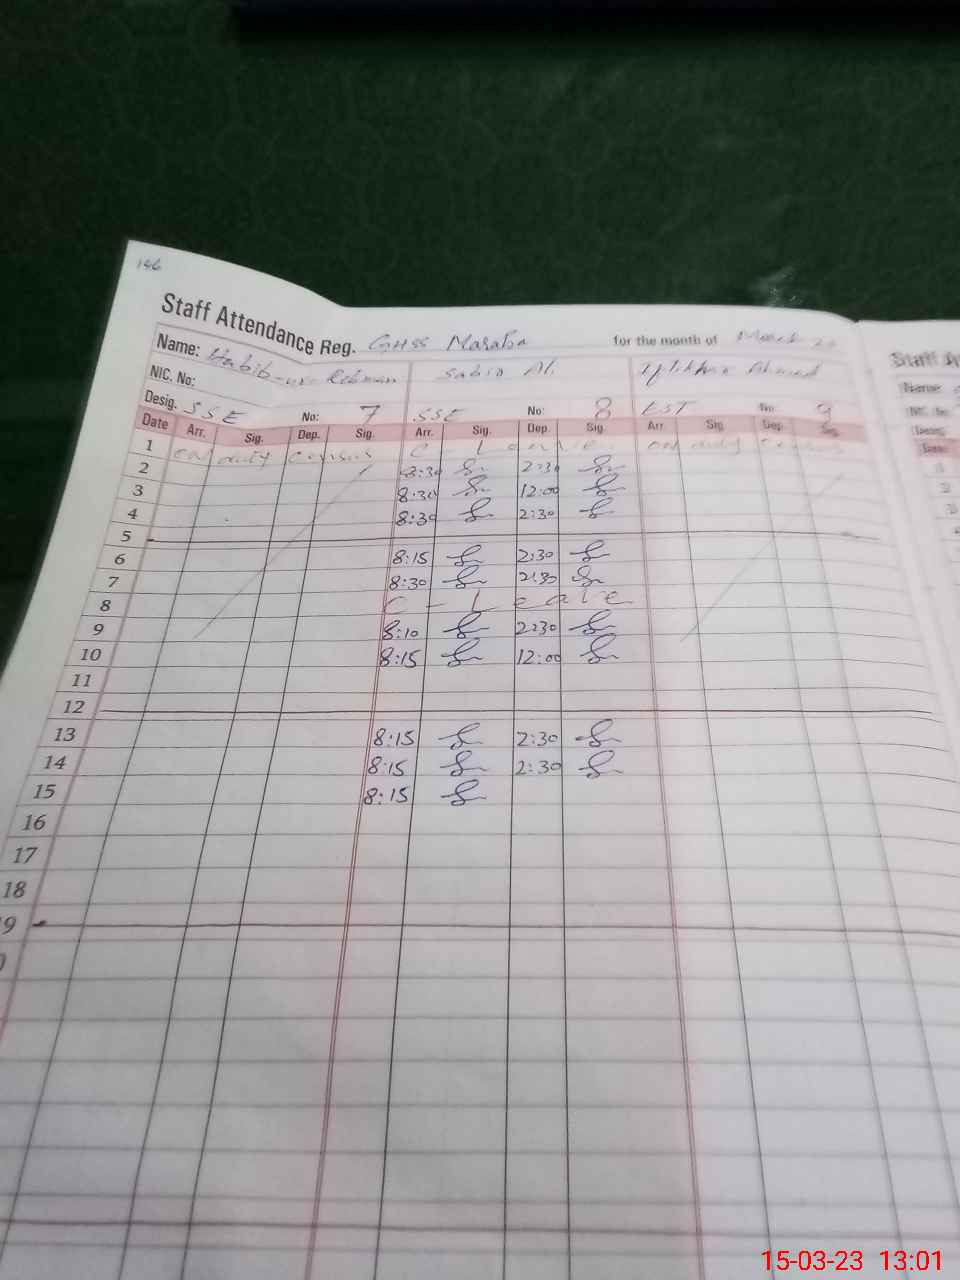 146
Staff Attendance Reg. GHSS Maraba for the month of March 23
Name: Habib-ur-Rehman Sabir Al. Iftikhar Ahmed
NIC. No:
Desig. SSE No: 7 SSE No: 8 EST No: 9
Date Arr. Sig. Dep. Sig. Arr. Sig. Dep. Sig. Arr Sig. Dep. Sig.
1 on duty census C - Leave on duty census
2 8:30 2:30
3 8:30 12:00
4 8:30 2:30
5
6 8:15 2:30
7 8:30 2:30
8 C - Leave
9 8:10 2:30
10 8:15 12:00
11
12
13 8:15 2:30
14 8:15 2:30
15 8:15
16
17
18
9
Staff A
Name:
NIC. No
Desig.
Date
15-03-23 13:01